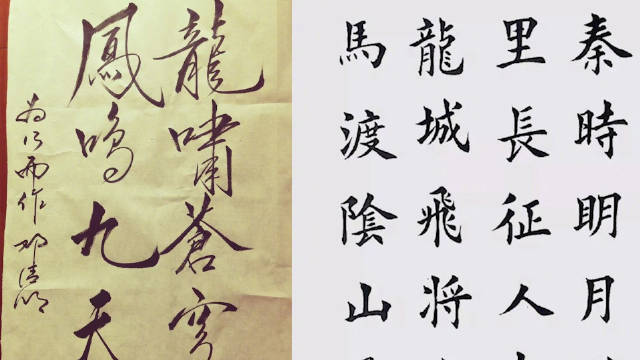 龍嘯蒼穹
鳳鳴九天
秦時明月
里長征人
龍城飛將
馬渡陰山